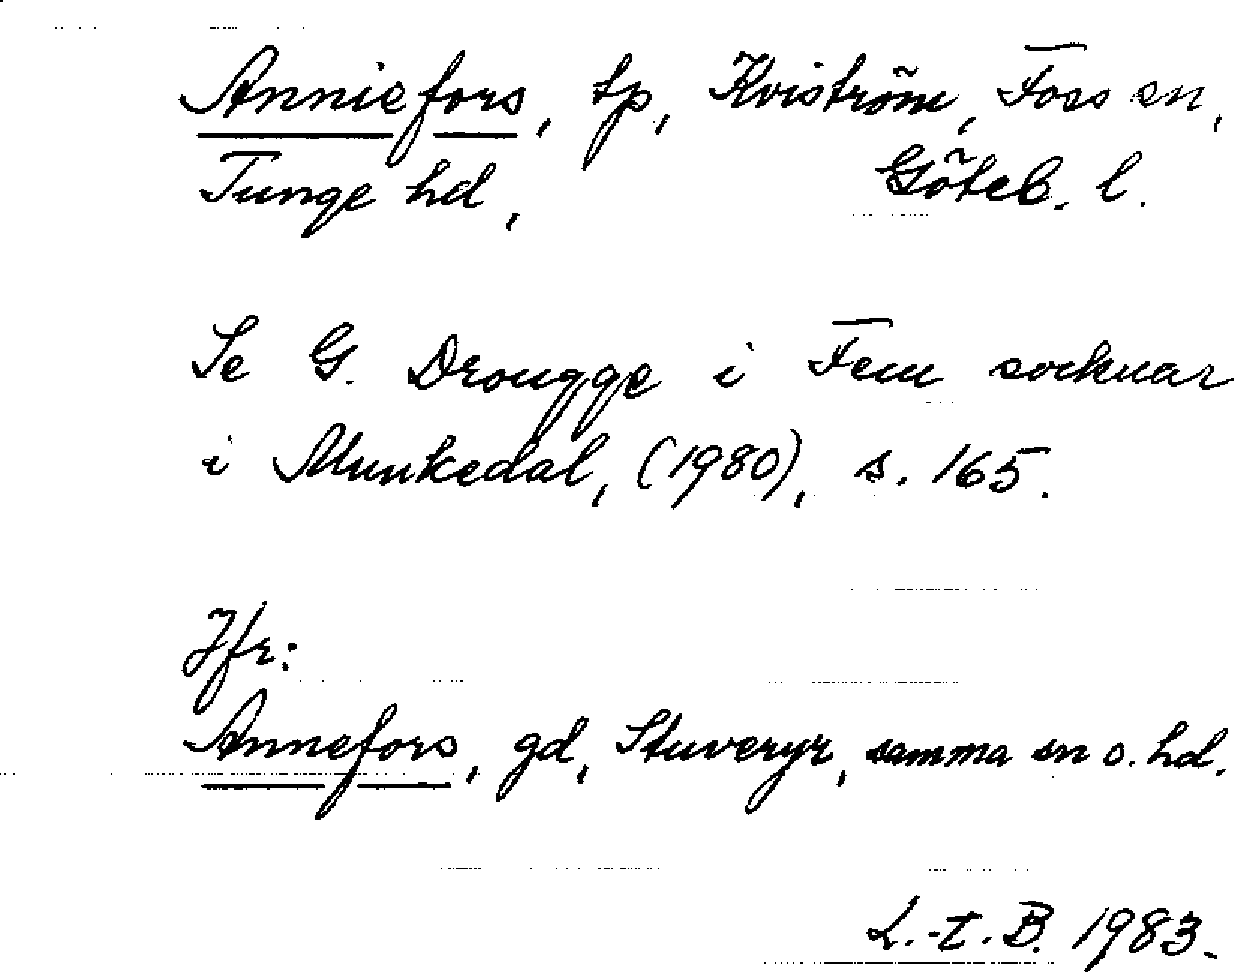 Anniefors, tp, Kviström, Foss sn,
Tunge hd, Göteb. l.
Se G. Drougge i Fem socknar
i Munkedal, (1980), s. 165.
Jfr:
Annefors, gd, Stuveryr, samma sn o. hd.
L.-t. B. 1983.